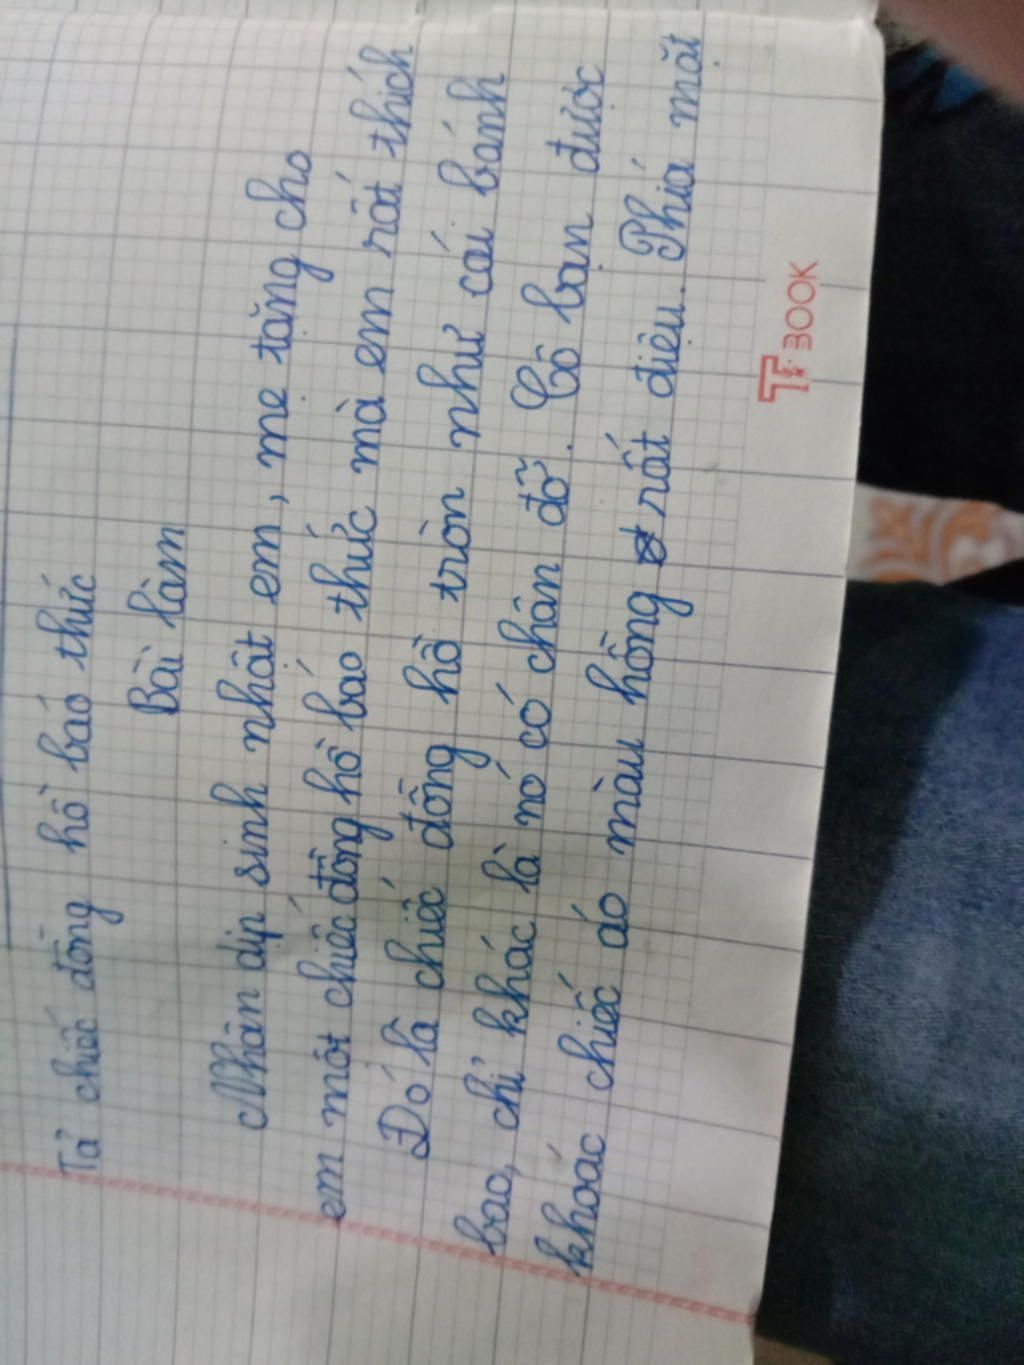 Tả chiếc đồng hồ báo thức
Bài làm
Nhân dịp sinh nhật em, mẹ tặng cho
em một chiếc đồng hồ báo thức mà em rất thích
Đó là chiếc đồng hồ tròn như cái bánh
bao, chỉ khác là nó có chân đỡ. Cô bạn được
khoác chiếc áo màu hồng rất điệu. Phía mặt
BOOK